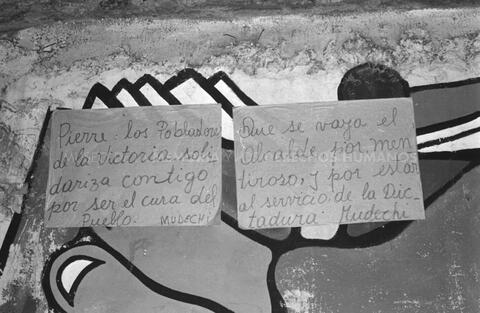 Pierre: los Pobladore
de la Victoria soli
dariza contigo
por ser el cura del
Pueblo. MUDECHI
Que se vaya el
Alcalde por men
tiroso, y por estar
al servicio de la Dic-
tadura. Mudechi
HUMANOS